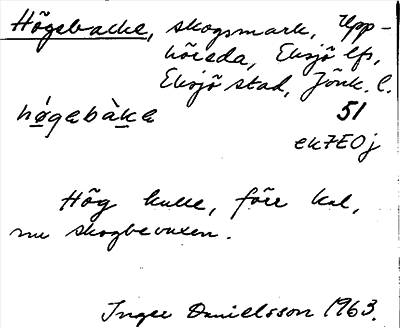 Högebacke, skogsmark, Upp-
hörsda, Eksjö lfs,
Eksjö stad, Jönk. l.
hø̣gəbàk̲ə 51
ek7E0j
Hög kulle, förr kal,
nu skogbevuxen.
Inger Danielsson 1963.